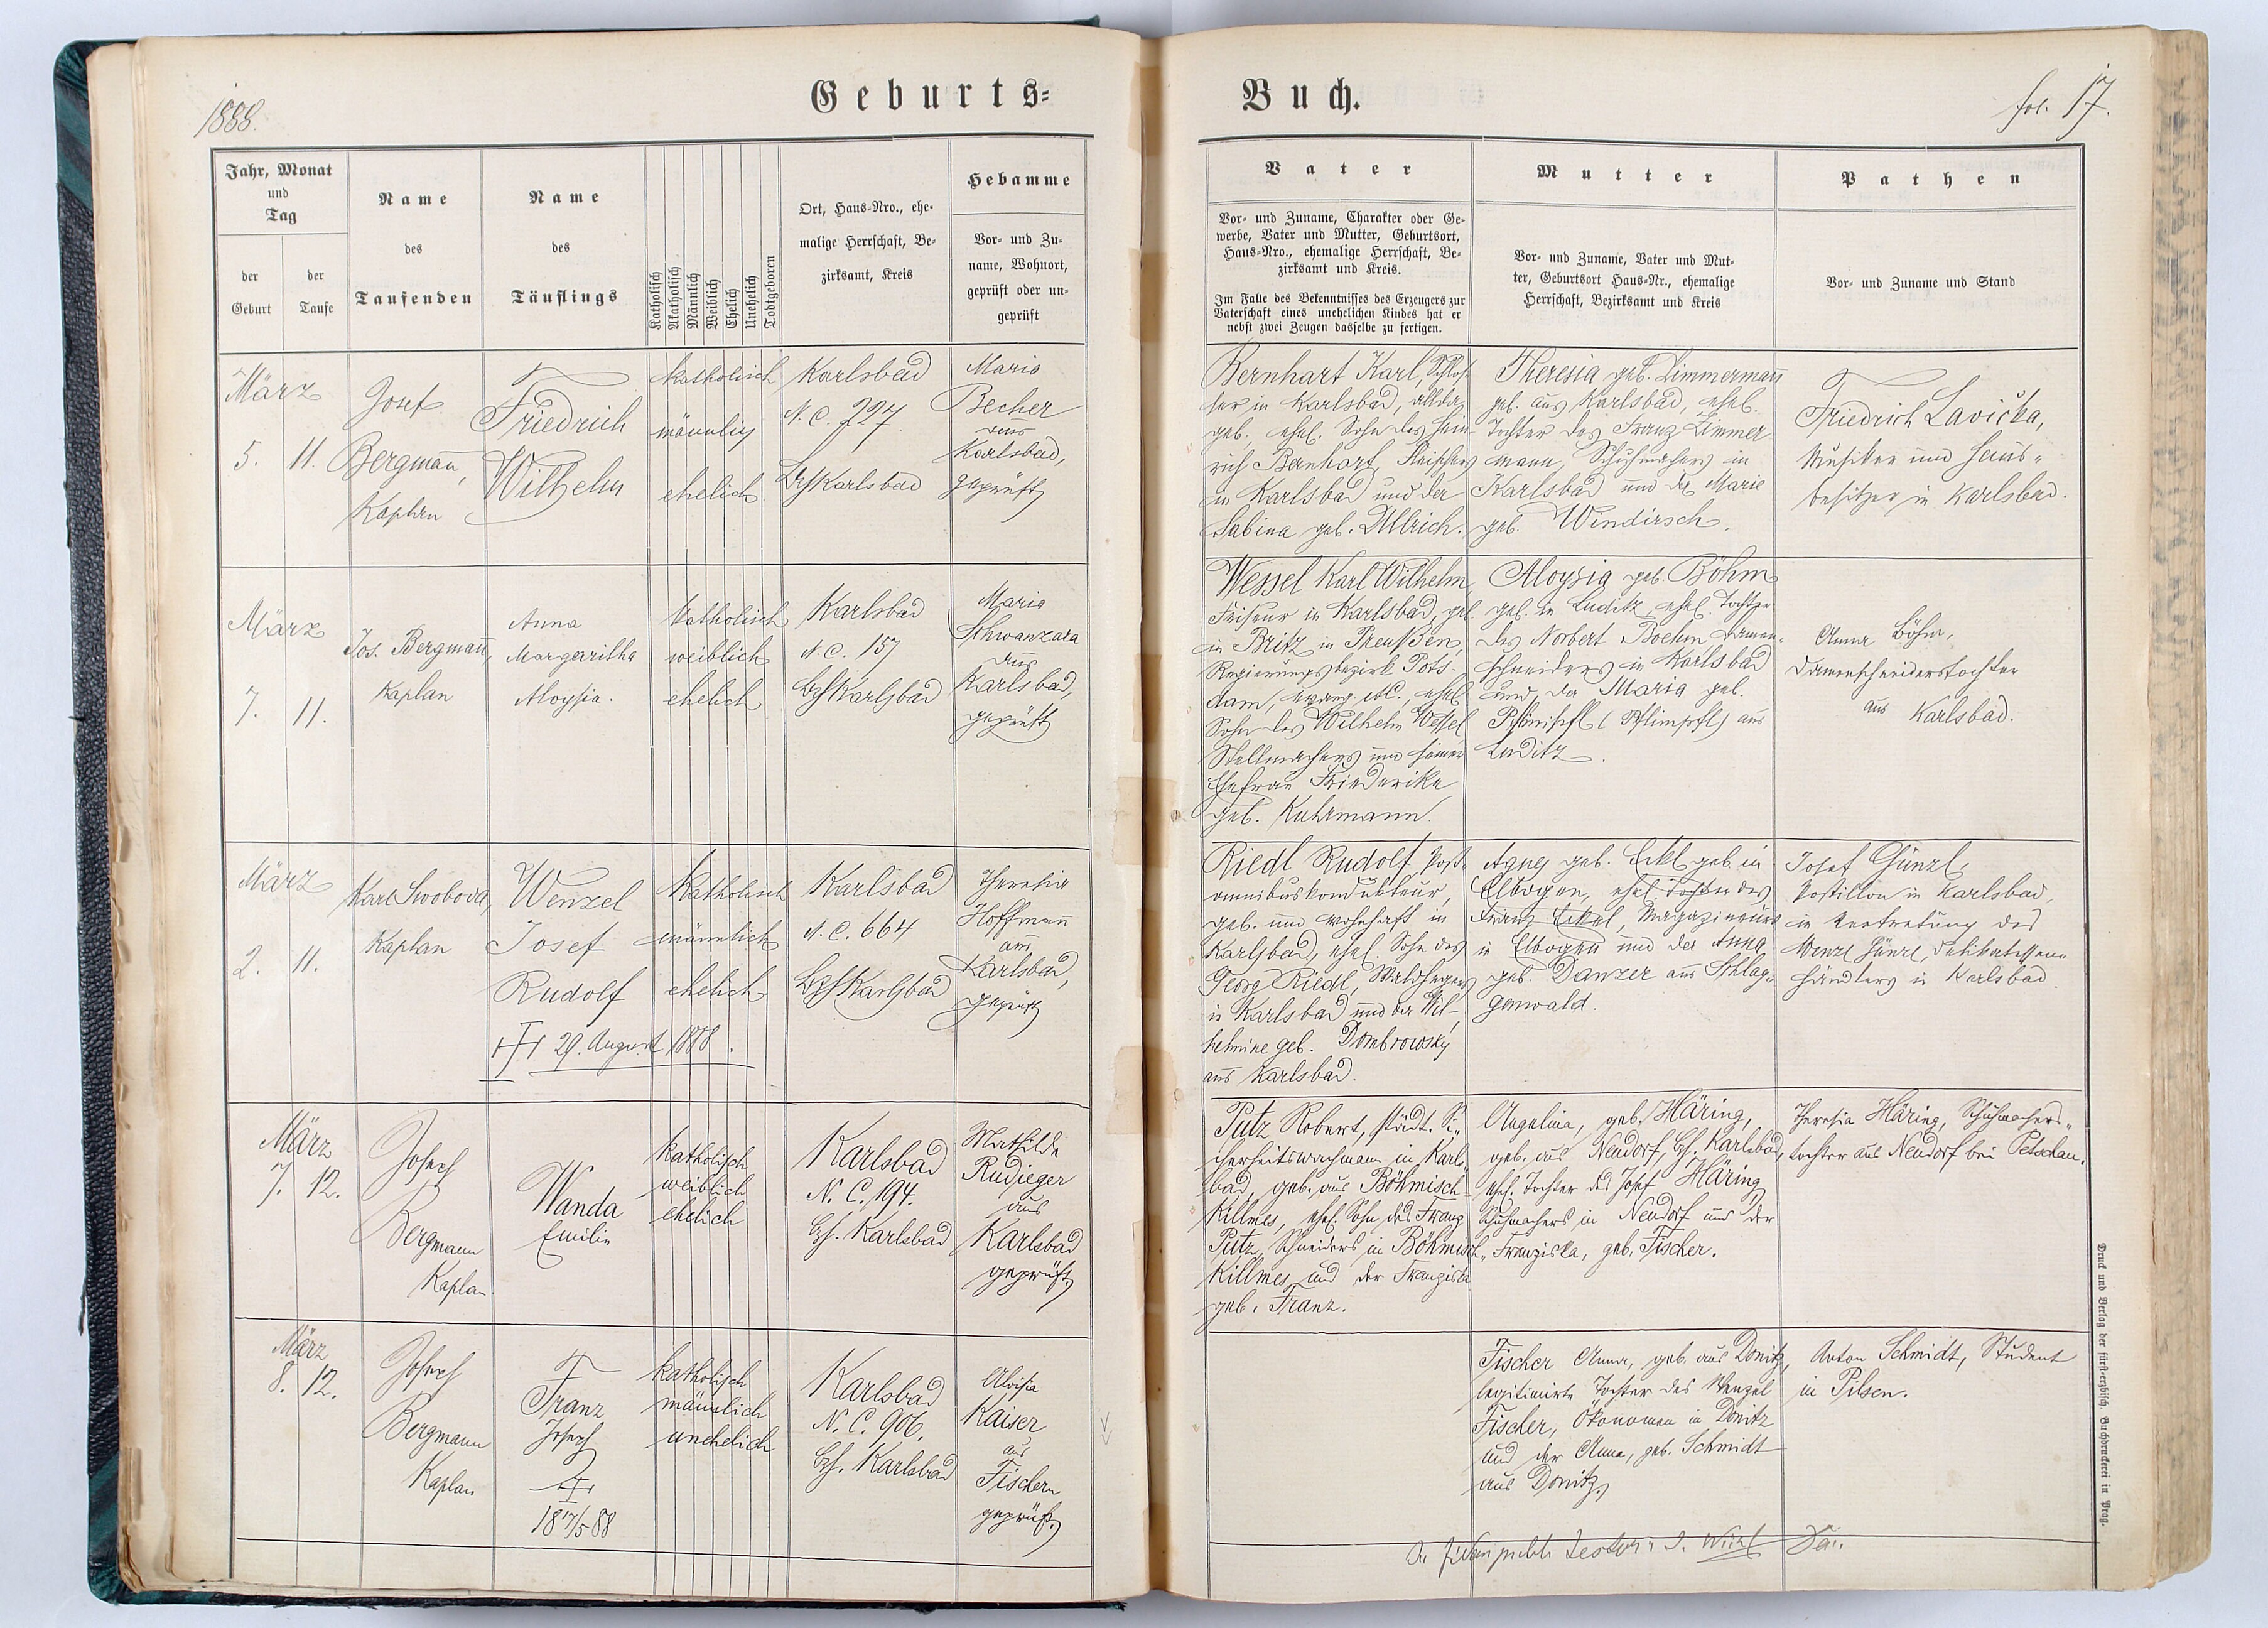 1888.
Geburts=
Jahr, Monat
und
Tag
der
Geburt
der
Taufe
Name
des
Taufenden
Name
des
Täuflings
Katholisch
Akatholisch
Männlich
Weiblich
Ehelich
Unehelich
Todtgeboren
Ort, Haus=Nro., ehe=
malige Herrschaft, Be=
zirksamt, Kreis
Hebamme
Vor= und Zu=
name, Wohnort,
geprüft oder un=
geprüft
März
5. 11.
Josef
Bergmann,
Kaplan
Friedrich
Wilhelm
katholisch
männlich
ehelich
Karlsbad
N. C. 227.
Bzh Karlsbad
Maria
Becher
aus
Karlsbad,
geprüft
März
7. 11.
Jos. Bergmann,
Kaplan
Anna
Margaritha
Aloysia.
katholisch
weiblich
ehelich
Karlsbad
N. C. 157
Bzh Karlsbad
Maria
Schwanzara
aus
Karlsbad,
geprüft
März
2. 11.
Karl Swoboda,
Kaplan
Wenzel
Josef
Rudolf
29. August 1888.
katholisch
männlich
ehelich
Karlsbad
N. C. 664
Bzh Karlsbad
Theresia
Hoffmann
aus
Karlsbad,
geprüft
März
7. 12.
Josef
Bergmann
Kaplan
Wanda
Emilie
katholisch
weiblich
ehelich
Karlsbad
N. C. 194.
Bzh. Karlsbad
Mathilde
Rudieger
aus
Karlsbad
geprüft
März
8. 12.
Josef
Bergmann
Kaplan
Franz
Josef
18 17/5 88
katholisch
männlich
unehelich
Karlsbad
N. C. 906.
Bzh. Karlsbad
Aloisia
Kaiser
aus
Fischern
geprüft.
Buch.
fol. 17.
Vater
Vor= und Zuname, Charakter oder Ge=
werbe, Vater und Mutter, Geburtsort,
Haus=Nro., ehemalige Herrschaft, Be=
zirksamt und Kreis.
Im Falle des Bekenntnisses des Erzeugers zur
Vaterschaft eines unehelichen Kindes hat er
nebst zwei Zeugen dasselbe zu fertigen.
Mutter
Vor= und Zuname, Vater und Mut=
ter, Geburtsort Haus=Nr., ehemalige
Herrschaft, Bezirksamt und Kreis
Pathen
Vor= und Zuname und Stand
Bernhart Karl, Schlos=
ser in Karlsbad, allda
geb. ehel. Sohn des Hein=
rich Bernhart, Fleischers
in Karlsbad und der
Sabina geb. Ullrich.
Theresia geb. Zimmermann
geb. aus Karlsbad, ehel.
Tochter des Franz Zimmer=
mann, Schuhmachers in
Karlsbad und der Marie
geb. Windirsch.
Friedrich Lavička,
Musiker und Haus=
besitzer in Karlsbad.
Wessel Karl Wilhelm
Friseur in Karlsbad, geb.
in Britz in Preußen,
Regierungsbezirk Pots=
dam, evang. A.C., ehel.
Sohn des Wilhelm Wessel
Stellmachers und seiner
Ehefrau Friederike
geb. Kuhrmann.
Aloysia geb. Böhm
geb. in Luditz, ehel. Tochter
des Norbert Boehm Damen=
schneiders in Karlsbad
und der Maria geb.
(Pflimpfl) aus
Luditz.
Anna Böhm,
Damenschneiderstochter
aus Karlsbad.
Riedl Rudolf Post=
omnibuskondukteur,
geb. und wohnhaft in
Karlsbad, ehel. Sohn des
Georg Riedl, Waldhegers
in Karlsbad und der Wil=
helmine geb. Dombrowsky
aus Karlsbad.
Agnes geb. Eckl geb. in
Elbogen, ehel. Tochter des
Franz Eckl, Magazineurs
in Elbogen und der Anna
geb. Danzer aus Schlag=
genwald.
Josef Günzl,
Postillon in Karlsbad,
in Vertretung des
Wenzl Günzl, Delikatessen=
händlers in Karlsbad.
Putz Robert, städt. Si=
cherheitswachmann in Karls=
bad, geb. aus Böhmisch=
Killmes, ehel. Sohn des Franz
Putz, Schneiders in Böhmisch=
Killmes und der Franziska
geb. Franz.
Angelina, geb. Häring,
geb. aus Neudorf, Bzh. Karlsbad,
ehel. Tochter des Josef Häring
Schuhmachers in Neudorf und der
Franziska, geb. Fischer.
Theresia Häring, Schuhmachers=
tochter aus Neudorf bei Petschau.
Fischer Anna, geb. aus Donitz,
legitimirte Tochter des Wenzel
Fischer, Ökonomen in Donitz
und der Anna, geb. Schmidt
aus Donitz.
Anton Schmidt, Student
in Pilsen.
Druck und Verlag der fürst=erzbisch. Buchdruckerei in Prag.